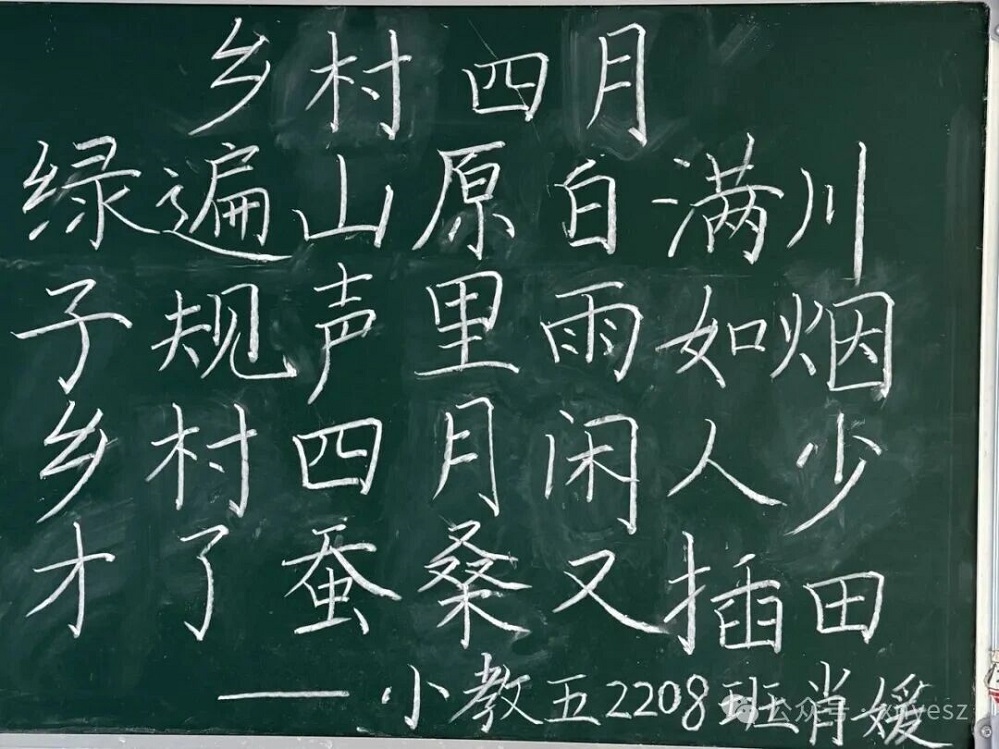 乡村四月
绿遍山原白满川
子规声里雨如烟
乡村四月闲人少
才了蚕桑又插田
——小教五2208班肖媛
公众号·xjlyesz